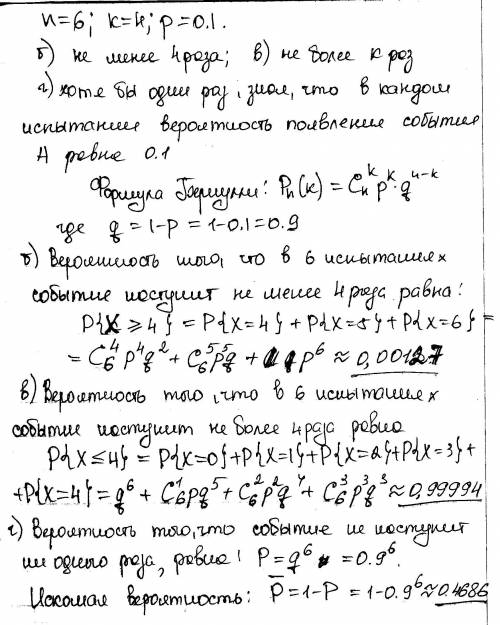 n=6; k=4; p=0.1.
б) не менее 4 раза; в) не более k раз
г) хотя бы один раз, зная, что в каждом
испытании вероятность появления события
A равна 0.1
Формула Бернулли: Pₙ(k) = Cₙᵏ pᵏ · qⁿ⁻ᵏ
где q = 1-p = 1-0.1=0.9
б) Вероятность того, что в 6 испытаниях
событие наступит не менее 4 раза равна:
P{X ≥ 4} = P{X=4} + P{X=5} + P{X=6} =
= C₆⁴ p⁴q² + C₆⁵ p⁵q + p⁶ ≈ 0,00127
в) Вероятность того, что в 6 испытаниях
событие наступит не более 4 раза равна
P{X ≤ 4} = P{X=0}+P{X=1}+P{X=2}+P{X=3}+
+P{X=4} = q⁶ + C₆¹pq⁵ + C₆²p²q⁴ + C₆³p³q³ ≈ 0,99994
г) Вероятность того, что событие не наступит
ни одного раза, равна: P = q⁶ = 0.9⁶.
Искомая вероятность: P̅ = 1-P = 1-0.9⁶ ≈ 0.4686